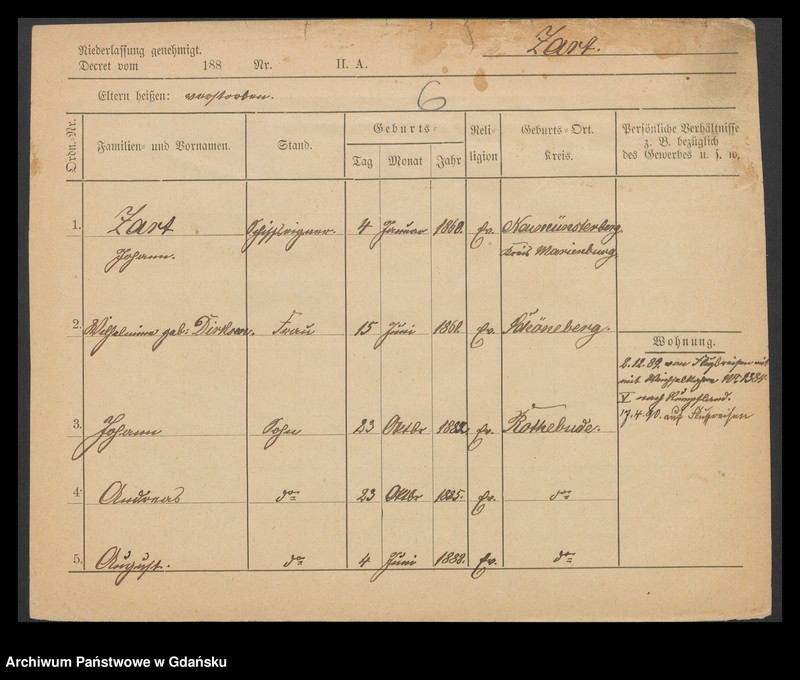 Niederlassung genehmigt.
Zart.
Decret vom 188 Nr. II. A.
Eltern heißen: verstorben.
6
Ordn.-Nr. Familien- und Vornamen. Stand. Geburts- Tag Monat Jahr Religion Geburts-Ort. Kreis. Persönliche Verhältnisse z. B. bezüglich des Gewerbes u. s. w.
1. Zart Schiffseigner. 4 Januar 1860. Ev. Neumünsterberg.
Johann. Kreis Marienburg
2. Wilhelmine geb. Dirksen. Frau 15 Juni 1860. Ev. Schöneberg.
Wohnung.
2.12.89. von Flußreisen
mit Weichselkahn
V nach
17.4.90. auf Flußreisen
3. Johann Sohn 23 Oktbr 1882. Ev. Rothebude.
4. Andreas do 23 Oktbr 1885. Ev. do
5. August. do 4 Juni 1888. Ev. do
Archiwum Państwowe w Gdańsku